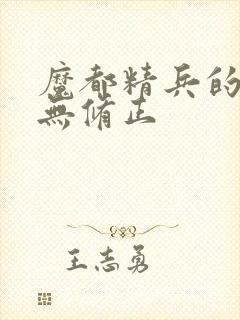 魔都精兵的
無修正
王志勇